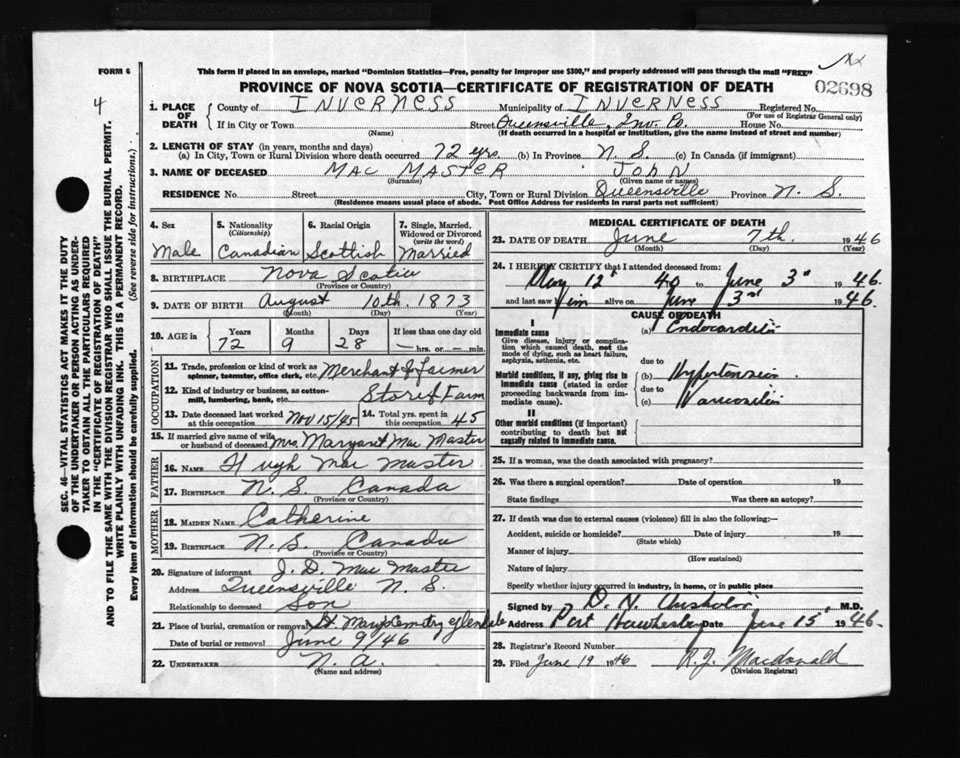 FORM 6
This form if placed in an envelope, marked "Dominion Statistics—Free, penalty for improper use $300," and properly addressed will pass through the mail "FREE"
PROVINCE OF NOVA SCOTIA—CERTIFICATE OF REGISTRATION OF DEATH
02698
4
1. PLACE OF DEATH County of INVERNESS Municipality of INVERNESS Registered No.
(For use of Registrar General only)
If in City or Town Street Queensville, Inv. Co. House No.
(Name) (If death occurred in a hospital or institution, give the name instead of street and number)
2. LENGTH OF STAY (in years, months and days)
(a) In City, Town or Rural Division where death occurred 72 yrs. (b) In Province N. S. (c) In Canada (if immigrant)
3. NAME OF DECEASED MAC MASTER JOHN
(Surname) (Given name or names)
RESIDENCE No. Street City, Town or Rural Division Queensville Province N. S.
(Residence means usual place of abode. Post Office Address for residents in rural parts not sufficient)
4. Sex 5. Nationality (Citizenship) 6. Racial Origin 7. Single, Married, Widowed or Divorced (write the word)
Male Canadian Scottish Married
8. BIRTHPLACE Nova Scotia
(Province or Country)
9. DATE OF BIRTH August 10th. 1873
(Month) (Day) (Year)
10. AGE in Years Months Days If less than one day old
72 9 28 — hrs. or — min.
OCCUPATION
11. Trade, profession or kind of work as spinner, teamster, office clerk, etc. Merchant & Farmer
12. Kind of industry or business, as cotton-mill, lumbering, bank, etc. Store & Farm
13. Date deceased last worked at this occupation Nov 15/45 14. Total yrs. spent in this occupation 45
15. If married give name of wife or husband of deceased Mrs. Margaret Mac Master
FATHER
16. NAME Hugh Mac Master
17. BIRTHPLACE N. S. Canada
(Province or Country)
MOTHER
18. MAIDEN NAME Catherine
19. BIRTHPLACE N. S. Canada
(Province or Country)
20. Signature of informant J. D. Mac Master
Address Queensville N. S.
Relationship to deceased Son
21. Place of burial, cremation or removal St. Marys Cemetry Glendale
Date of burial or removal June 9/46
22. UNDERTAKER N. A.
(Name and address)
MEDICAL CERTIFICATE OF DEATH
23. DATE OF DEATH June 7th. 1946
(Month) (Day)
24. I HEREBY CERTIFY that I attended deceased from:
May 12 40 to June 3rd 1946
and last saw him alive on June 3rd 1946.
CAUSE OF DEATH
I
Immediate cause (a) Endocarditis
Give disease, injury or complication which caused death, not the mode of dying, such as heart failure, asphyxia, asthenia, etc.
due to
Morbid conditions, if any, giving rise to immediate cause (stated in order proceeding backwards from immediate cause). (b) Hypertension
due to
(c)
II
Other morbid conditions (if important) contributing to death but not causally related to immediate cause.
25. If a woman, was the death associated with pregnancy?
26. Was there a surgical operation? Date of operation 19
State findings Was there an autopsy?
27. If death was due to external causes (violence) fill in also the following:—
Accident, suicide or homicide? Date of injury 19
(State which)
Manner of injury
(How sustained)
Nature of injury
Specify whether injury occurred in industry, in home, or in public place
Signed by D. N. Chisholm M.D.
Address Port Hawkesbury Date June 15 1946.
28. Registrar's Record Number
29. Filed June 19 1946 R. J. Macdonald
(Division Registrar)
SEC. 46—VITAL STATISTICS ACT MAKES IT THE DUTY
OF THE UNDERTAKER OR PERSON ACTING AS UNDER-
TAKER TO OBTAIN ALL THE PARTICULARS REQUIRED
IN THE "CERTIFICATE OF REGISTRATION OF DEATH"
AND TO FILE THE SAME WITH THE DIVISION REGISTRAR WHO SHALL ISSUE THE BURIAL PERMIT.
WRITE PLAINLY WITH UNFADING INK. THIS IS A PERMANENT RECORD.
Every item of information should be carefully supplied. (See reverse side for instructions.)